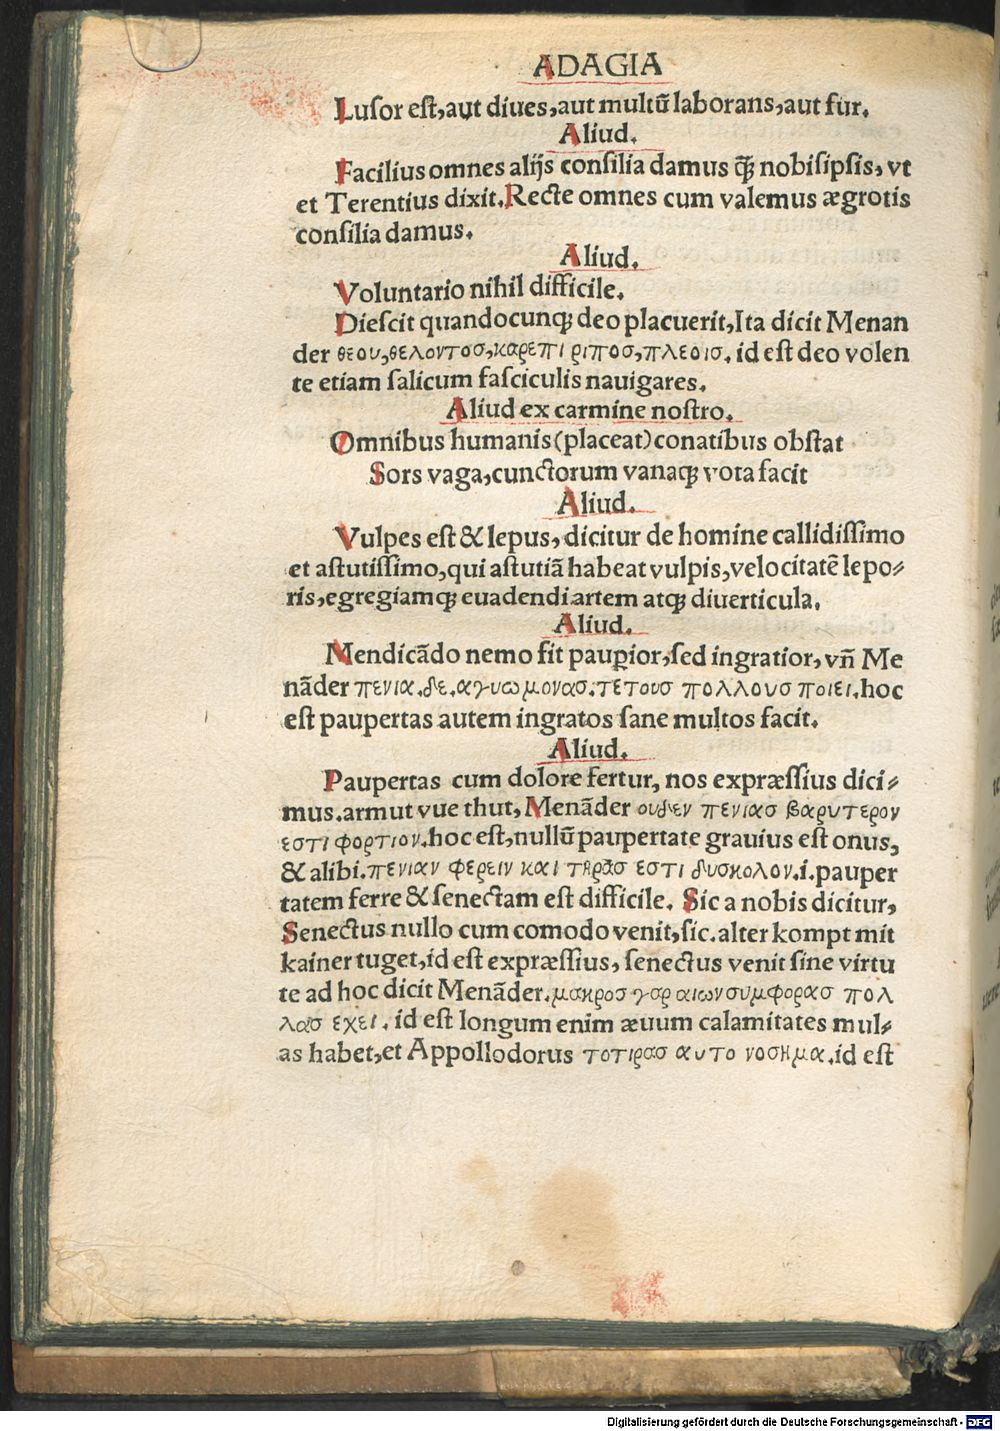 ADAGIA
Lusor est, aut diues, aut multū laborans, aut fur.
Aliud.
Facilius omnes alijs consilia damus q̄ꝫ nobisipsis, vt
et Terentius dixit. Recte omnes cum valemus ægrotis
consilia damus.
Aliud.
Voluntario nihil difficile.
Diescit quandocunqꝫ deo placuerit, Ita dicit Menan
der θεου, θελοντοσ, καρεπι ριποσ, πλεοισ. id est deo volen
te etiam salicum fasciculis nauigares.
Aliud ex carmine nostro.
Omnibus humanis (placeat) conatibus obstat
Sors vaga, cunctorum vanaqꝫ vota facit
Aliud.
Vulpes est & lepus, dicitur de homine callidissimo
et astutissimo, qui astutiā habeat vulpis, velocitatē lepo⸗
ris, egregiamqꝫ euadendi artem atqꝫ diuerticula.
Aliud.
Mendicādo nemo fit pauꝑior, sed ingratior, vn̄ Me
nāder πενια. δε. αγνωμονασ. τετουσ πολλουσ ποιει. hoc
est paupertas autem ingratos sane multos facit.
Aliud.
Paupertas cum dolore fertur, nos expræssius dici⸗
mus. armut vue thut, Menāder ουδεν πενιασ βαρυτερον
εστι φορτιον. hoc est, nullū paupertate grauius est onus,
& alibi. πενιαν φερειν και τηρασ εστι δυσκολον. i. pauper
tatem ferre & senectam est difficile. Sic a nobis dicitur,
Senectus nullo cum comodo venit, sic. alter kompt mit
kainer tuget, id est expræssius, senectus venit sine virtu
te ad hoc dicit Menāder. μακροσ γαρ αιων συμφορασ πολ
λασ εχει. id est longum enim æuum calamitates mul⸗
as habet, et Appollodorus τοτιρασ αυτο νοσημα. id est
Digitalisierung gefördert durch die Deutsche Forschungsgemeinschaft - DFG